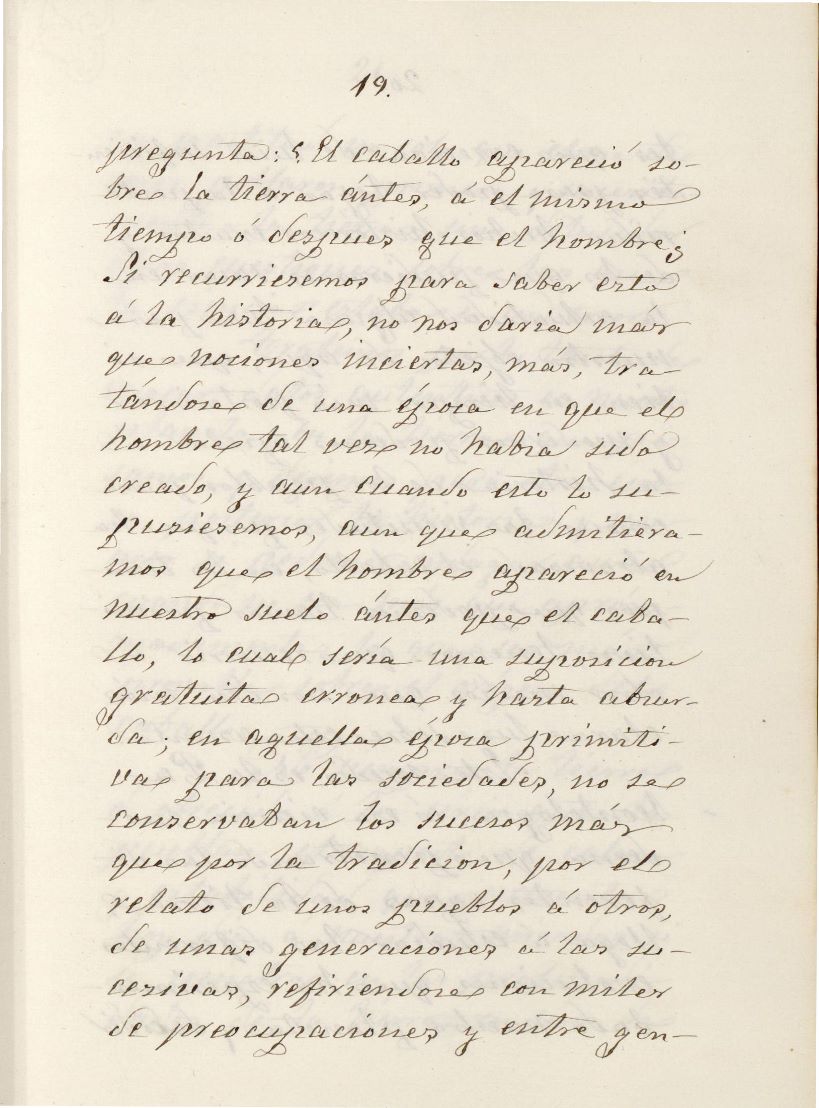 19.
pregunta: ¿El caballo apareció so-
bre la tierra ántes, á el mismo
tiempo ó despues que el hombre?
Si recurriesemos para saber esto
á la historia, no nos daria más
que nociones inciertas, más, tra-
tándose de una época en que el
hombre tal vez no habia sido
creado, y aun cuando esto lo su-
pusiesemos, aun que admitiera-
mos que el hombre apareció en
nuestro suelo ántes que el caba-
llo, lo cual sería una suposicion
gratuita erronea y hasta absur-
da; en aquella época primiti-
va para las sociedades, no se
conservaban los sucesos más
que por la tradicion, por el
relato de unos pueblos á otros,
de unas generaciones á las su-
cesivas, refiriendose con miles
de preocupaciones y entre gen-